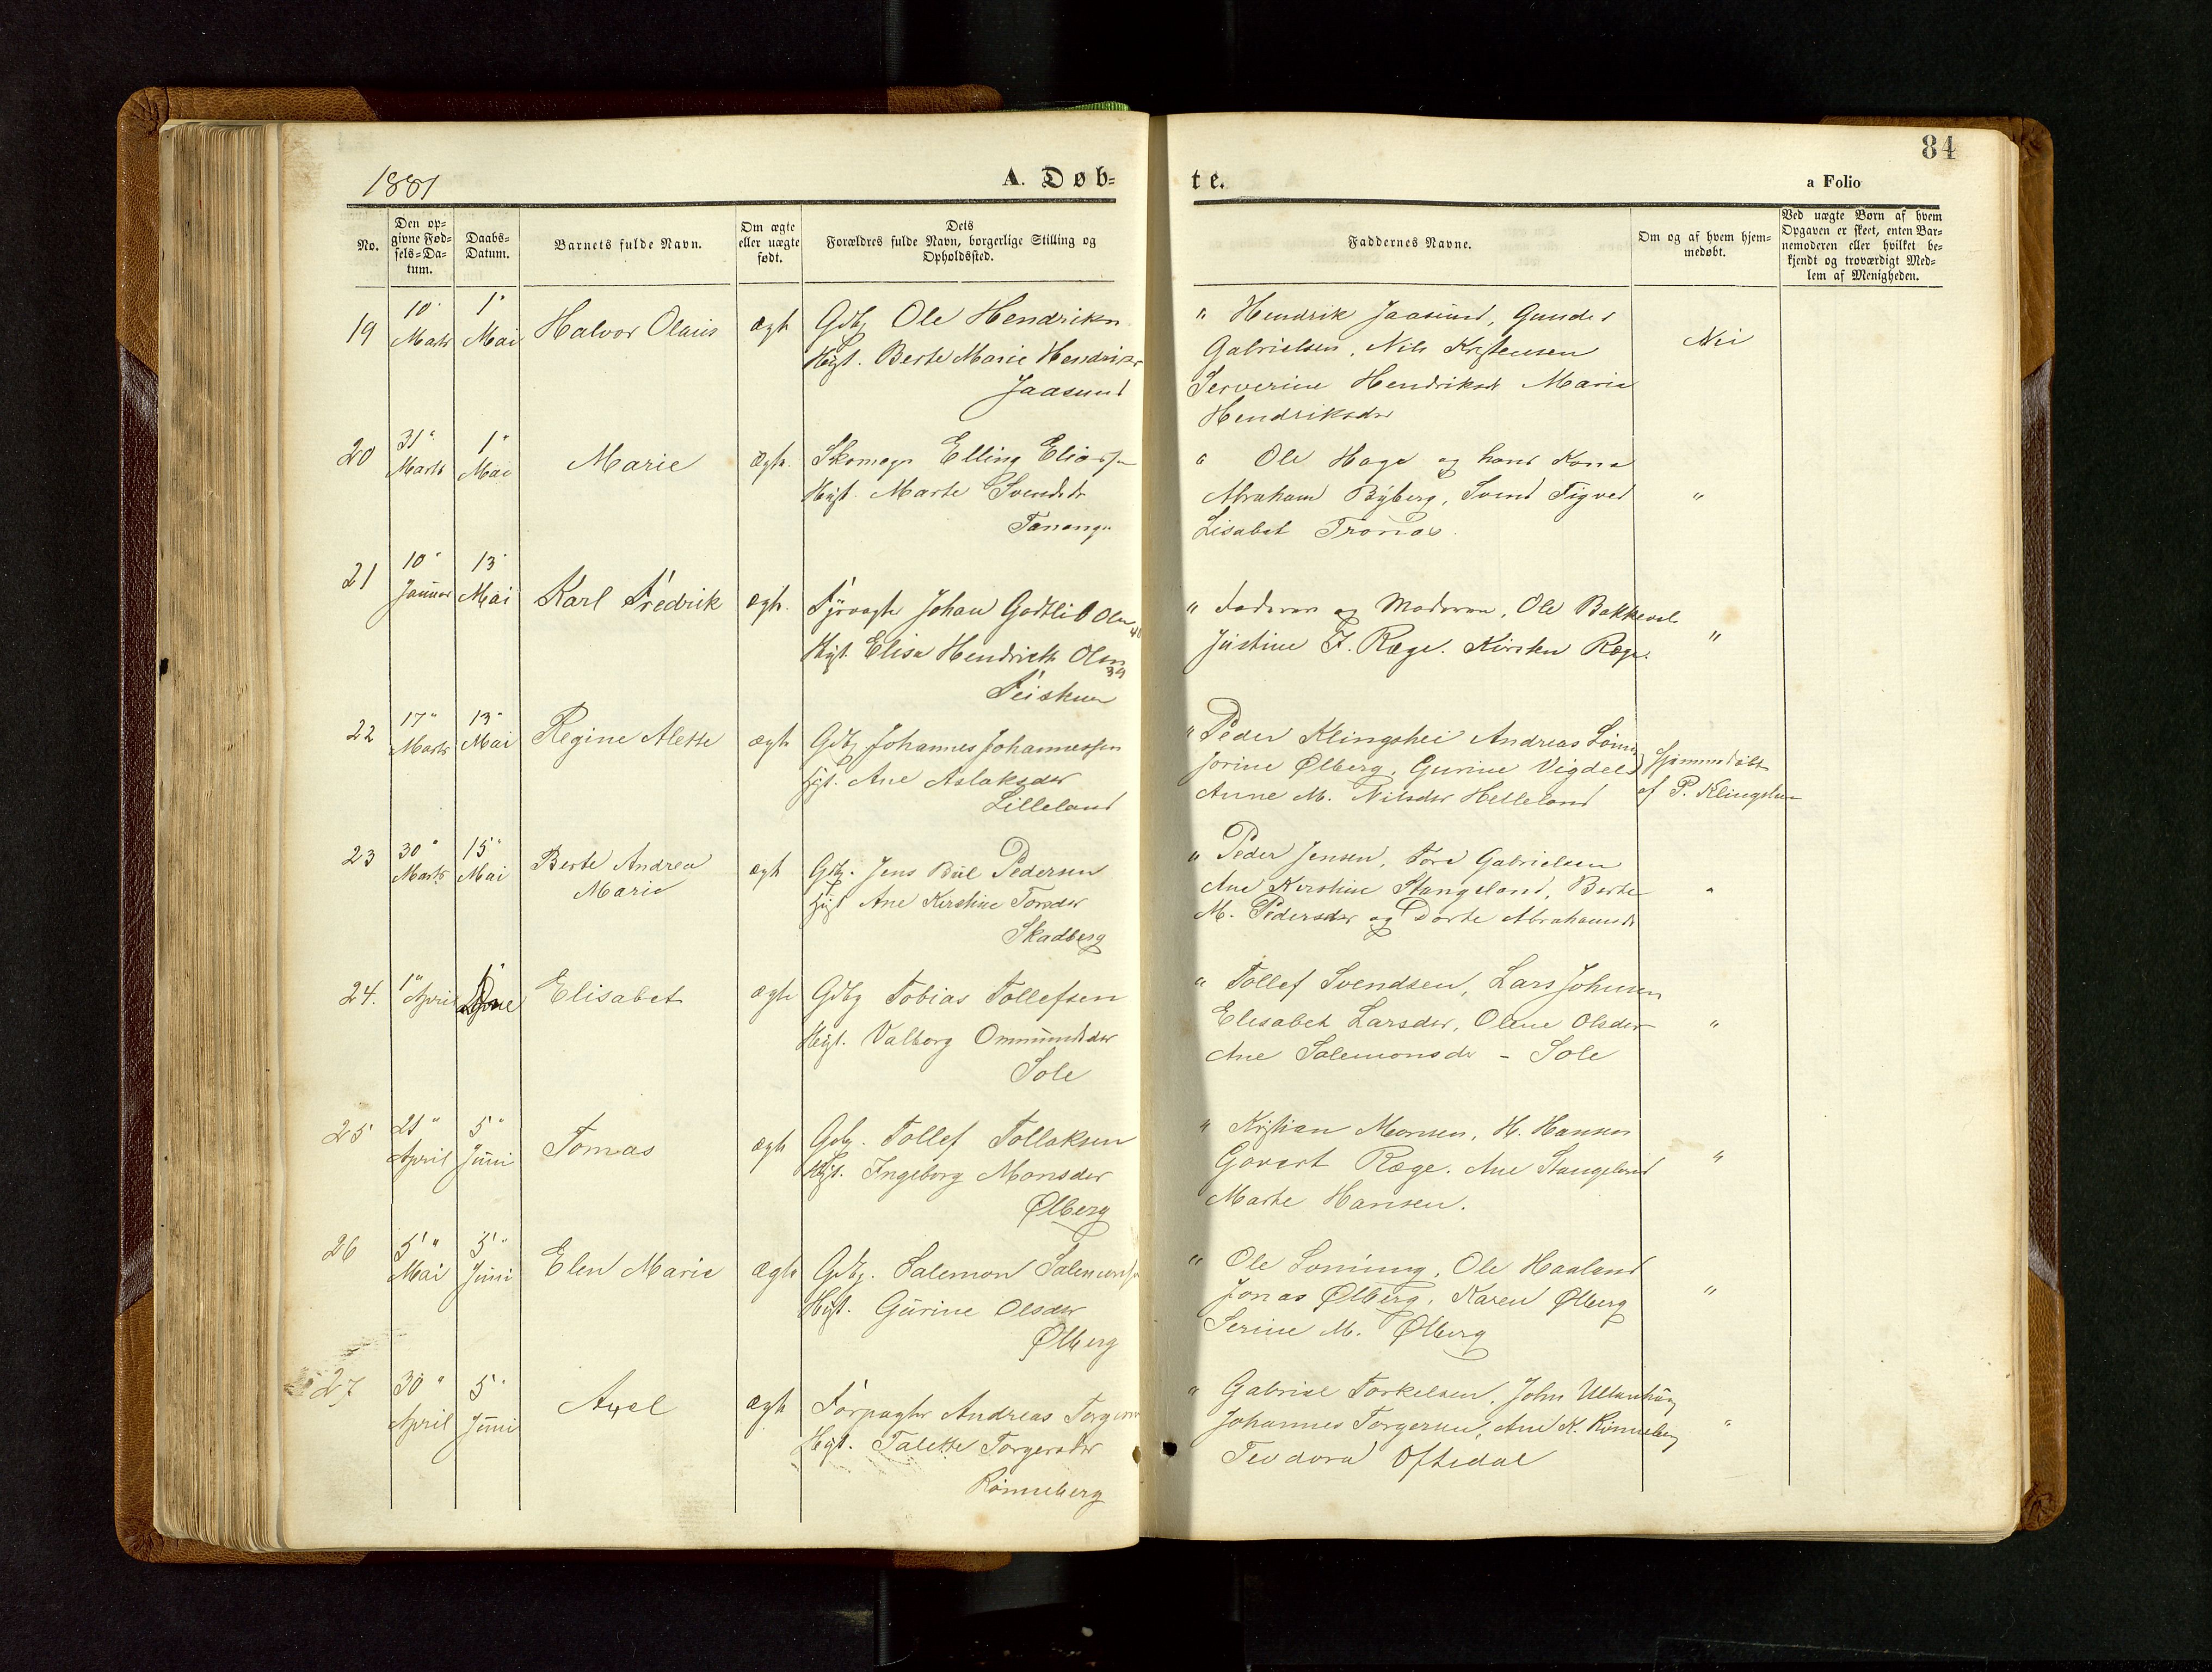 84
1881
A. Døb-
te.
a Folio
No.
Den op-
givne Fød-
sels-Da-
tum.
Daabs-
Datum.
Barnets fulde Navn.
Om ægte
eller uægte
født.
Dets
Forældres fulde Navn, borgerlige Stilling og
Opholdssted.
Faddernes Navne.
Om og af hvem hjem-
medøbt.
Ved uægte Børn af hvem
Opgaven er skeet, enten Bar-
nemoderen eller hvilket be-
kjendt og troværdigt Med-
lem af Menigheden.
19
10
Marts
1
Mai
Halvor Olaus
ægte
Gdbg Ole Hendriksn
Hgt. Berte Marie Hendriksr
Jaasund
" Hendrik Jaasund, Gunder
Gabrielsen, Nils Kristensen
Serverine Hendriksd Marie
Hendriksdr
Nei
20
31"
Marts
1"
Mai
Marie
ægte
Skomagr Elling Eliasn
Hgt. Marte Svendsdr
Tananger
" Ole Haga og hans Kone
Abraham Byberg, Svend Tigved
Lisabet Tronas
"
21
10"
Januar
13"
Mai
Karl Fredrik
ægte
Fyrvagtr Johan Gotlib Olsn 40
Hgt. Elisa Hendrikke Olsn 39
Feisteen
" Faderen og Moderen, Ole Bakkevol
Justine F. Ræge. Kirsten Ræge.
"
22
17"
Marts
13"
Mai
Regine Alette
ægte
Gdbg Johannes Johannessen
Hgt. Ane Aslaksdr
Lilleland
" Peder Klingshei Andreas
Jorine Ølberg, Gurine Vigdel
Anne M. Nilsdr Helleland
Hjemmedøbt
af P. Klingshei
23
30"
Marts
15"
Mai
Berte Andrea
Marie
ægte
Gdbg. Jens Bül Pedersen
Hgt Ane Kirstine Torsdr
Skadberg
" Peder Jensen, Tore Gabrielsen
Ane Kirstine Stangeland, Berte
M. Pedersdr og Dorte Abrahamsdr
"
24.
1"
April
1"
Elisabet
ægte
Gdbg Tobias Tollefsen
Hgt. Valborg Ommundsdr
Sole
" Tollef Svendsen, Lars Johnsen
Elisabet Larsdr, Oline Olsdr
Ane Salemonsdr - Sole
"
25
21"
April
5"
Juni
Tomas
ægte
Gdbg. Tollef Tollaksen
Hgt. Ingeborg Monsdr
Ølberg
" Kristian Monsen, H. Hansen
Govert Ræge. Ane Stangeland
Marte Hansen.
"
26
5"
Mai
5"
Juni
Elen Marie
ægte
Gdbg. Salemon Salemonsn
Hgt. Gurine Olsdr
Ølberg
" Ole Soming, Ole Haaland
Jonas Ølberg, Karen Ølberg
Serine M. Ølberg
"
27
30"
April
5"
Juni
Axel
ægte
Forpagter Andreas Torgersn
Hgt. Talette Torgersdr
Rønneberg
" Gabriel Torkelsen, John Ullenhaug
Johannes Torgersen, Ane K. Rønneberg
Teodora Oftedal
"